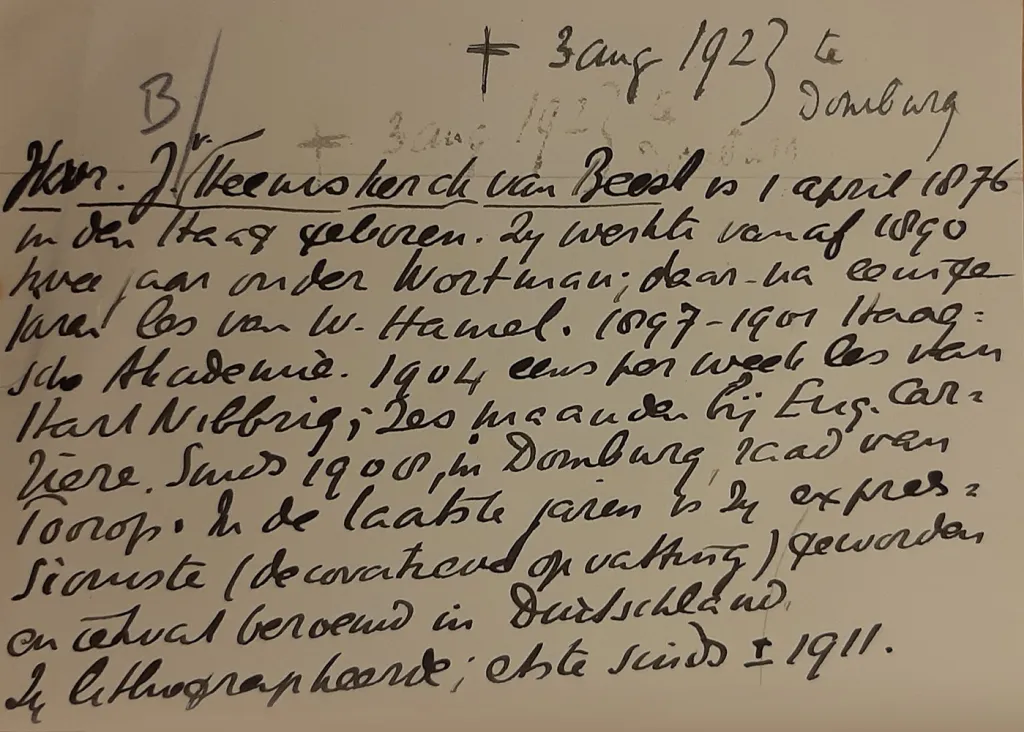 + 3 aug 1923 } te
Domburg
B/
Hoor. J. v. Heemskerck van Beest is 1 april 1876
in den Haag geboren. Zy werkte vanaf 1890
twee jaar onder Wortman; daar-na eenige
jaren les van W. Hamel. 1897-1901 Haag=
sche Akademie. 1904 eens per week les van
Hart Nibbrig; zes maanden bij Eug. Car=
rière. Sinds 1908, in Domburg, raad van
Toorop. In de laatste jaren is Zy expres=
sioniste (decoratieve opvatting) geworden
en is beroemd in Duitschland.
Zy lithographeerde; etste sinds ± 1911.